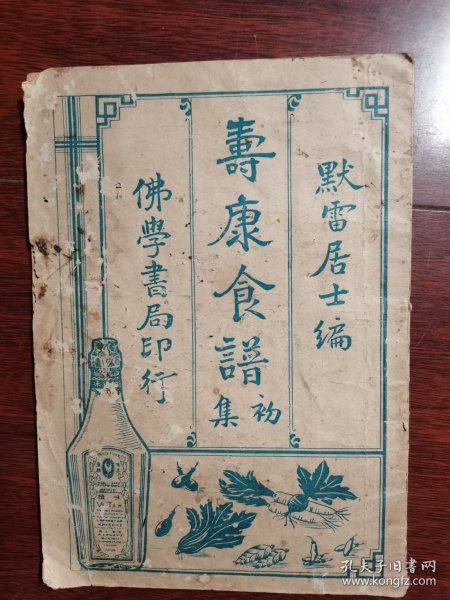 默雷居士編
壽康食譜
初集
佛學書局印行
孔夫子旧书网
www.kongfz.com